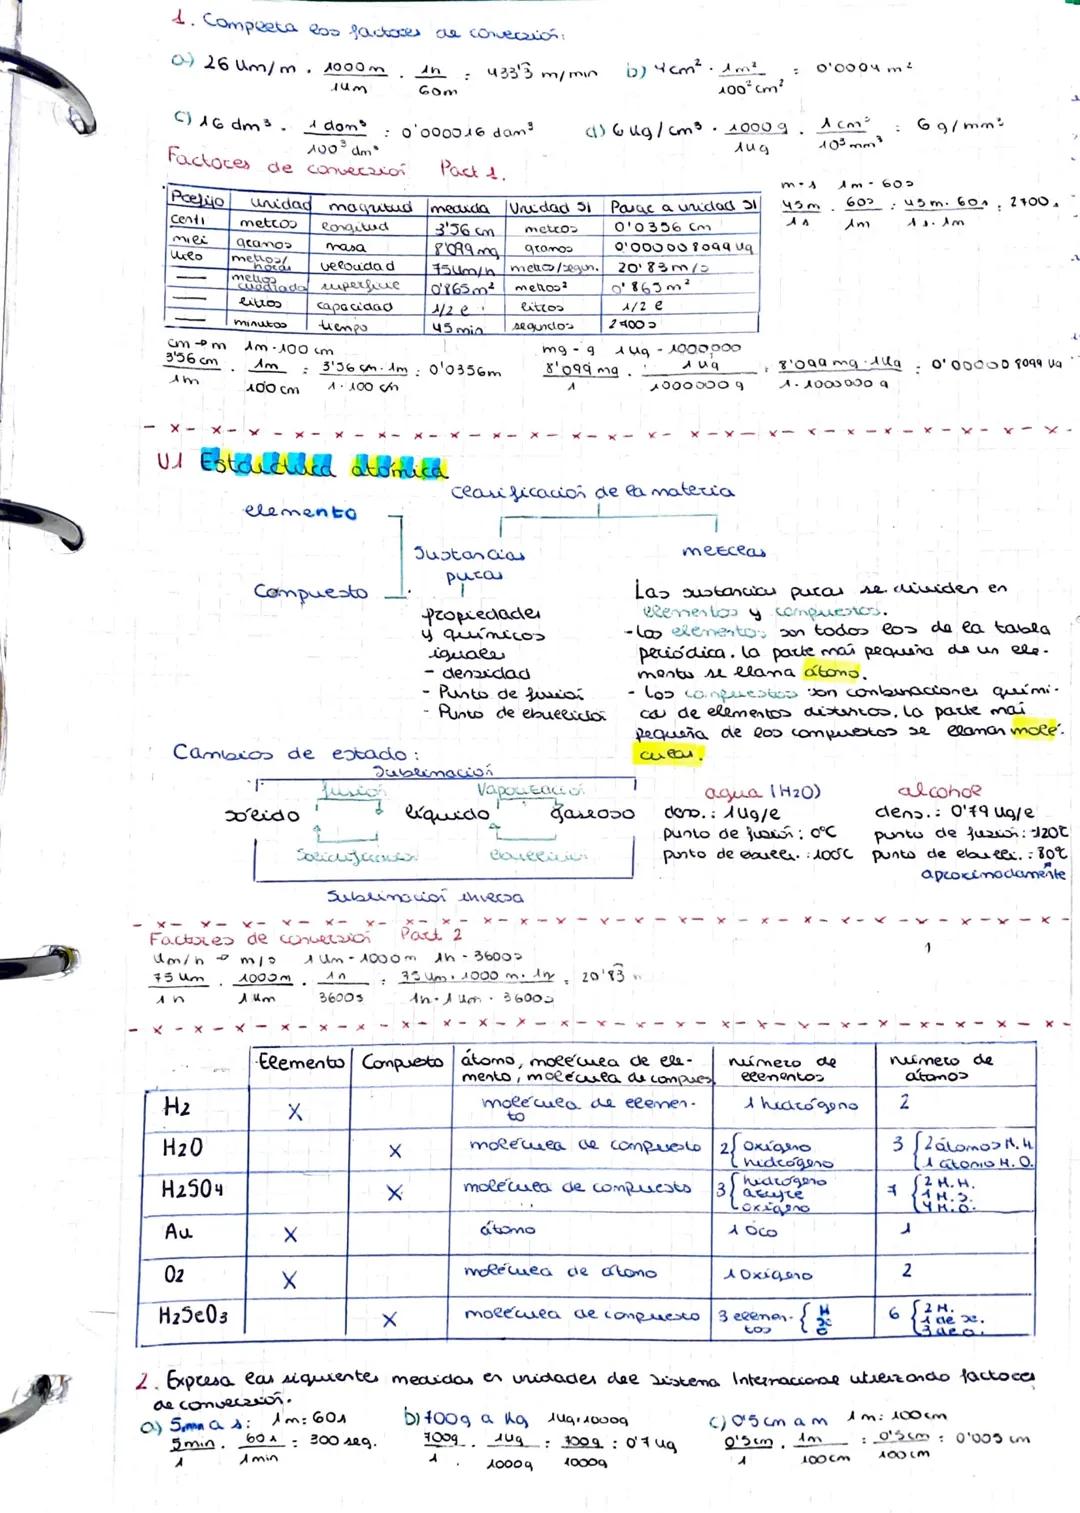 1. Completa los factores de conversión:
a) 26 Km/m . 1000 m / 1 Km . 1h / 60m : 433'3 m/min b) 4 cm² . 1m² / 100² cm² : 0'0004 m²
c) 16 dm³ . 1 dam³ / 100³ dm³ : 0'000016 dam³ d) 6 Kg/cm³ . 1000 g / 1Kg . 1 cm³ / 10³ mm³ : 6 g/mm³
Factores de conversión Part 1.
m - s 1m - 60s
45m / 1s . 60s / 1m : 45m. 60s / 1s. 1m : 2700s
Prefijo unidad magnitud medida Unidad SI Pasar a unidad SI
centi metros longitud 3'56 cm metros 0'0356 cm
mili gramos masa 8'099 mg gramos 0'000008099 Kg
Kilo metros/horas velocidad 75Km/h metros/segun. 20'83 m/s
— metros cuadrados superficie 0'865 m² metros² 0'865 m²
— litros capacidad 1/2 l litros 1/2 l
— minutos tiempo 45 min segundos 2700 s
cm → m 1m - 100 cm
3'56 cm / 1m . 1m / 100 cm : 3'56 cm. 1m / 1. 100 cm : 0'0356m
mg - g 1Kg - 1000,000
8'099 mg / 1 . 1Kg / 1000000 g : 8'099 mg. 1Kg / 1. 1000000 g : 0'000008099 Kg
U1 Estructura atómica
Clasificación de la materia
elemento
Compuesto
Sustancias puras
mezclas
propiedades
y químicos
iguales
- densidad
- Punto de fusión
- Punto de ebullición
Las sustancias puras se dividen en
elementos y compuestos.
- Los elementos son todos los de la tabla
periódica. La parte más pequeña de un ele-
mento se llama átomo.
- Los compuestos son combinaciones quími-
cas de elementos distintos. La parte más
pequeña de los compuestos se llaman molé-
culas.
Cambios de estado:
Sublimación
fusión Vaporización
sólido líquido gaseoso
Solidificación
Sublimación inversa
agua (H2O)
dens.: 1Kg/l
punto de fusión: 0ºC
punto de ebulli.: 100ºC
alcohol
dens.: 0'79 Kg/l
punto de fusión: -120ºC
punto de ebulli.: 80ºC
aproximadamente
Factores de conversión Part 2
Km/h → m/s 1 Km - 1000m 1h - 3600s
75 Km / 1h . 1000m / 1 Km . 1h / 3600s : 75 Km. 1000 m. 1h / 1h. 1 Km . 3600s : 20'83
Elemento Compuesto átomo, molécula de ele-
mento, molécula de compues. número de elementos número de átomos
H2 X molécula de elemen-
to 1 hidrógeno 2
H2O X molécula de compuesto 2 { oxígeno hidrógeno 3 { 2 átomos M. H. 1 átomo M. O.
H2SO4 X molécula de compuesto 3 { hidrógeno azufre oxígeno 7 { 2 M. H. 1 M. S. 4 M. O.
Au X átomo 1 oro 1
O2 X molécula de átomo 1 oxígeno 2
H2SeO3 X molécula de compuesto 3 elemen-
tos { H Se O 6 { 2 H. 1 de se. 3 de o.
2. Expresa las siguientes medidas en unidades del Sistema Internacional utilizando factores
de conversión.
a) 5 mn a s: 1m: 60s
5min / 1 . 60 s / 1min : 300 seg.
b) 700g a Kg 1Kg: 1000g
700g / 1 . 1Kg / 1000g : 700g / 1000g : 0'7 Kg
c) 0'5 cm a m 1m: 100cm
0'5cm / 1 . 1m / 100cm : 0'5cm / 100cm : 0'005 cm